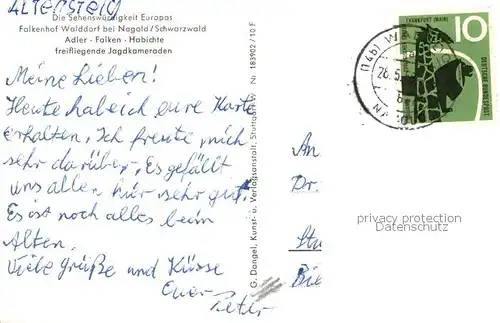 Altensteig
Die Sehenswürdigkeit Europas
Falkenhof Walddorf bei Nagold/Schwarzwald
Adler - Falken - Habichte
freifliegende Jagdkameraden
Meine Lieben!
Heute habe ich eure Karte
erhalten, Ich freute mich
sehr darüber, Es gefällt
uns allen hier sehr gut.
Es ist noch alles beim
Alten.
Viele grüße und Küsse
Euer
Peter
G. Dangel, Kunst- u. Verlagsanstalt, Stuttgart-W Nr. 183902/10 F
(14b)
26.5.
FRANKFURT (MAIN)
10
DEUTSCHE BUNDESPOST
An
Dr.
Stu
Bie
privacy protection
Datenschutz